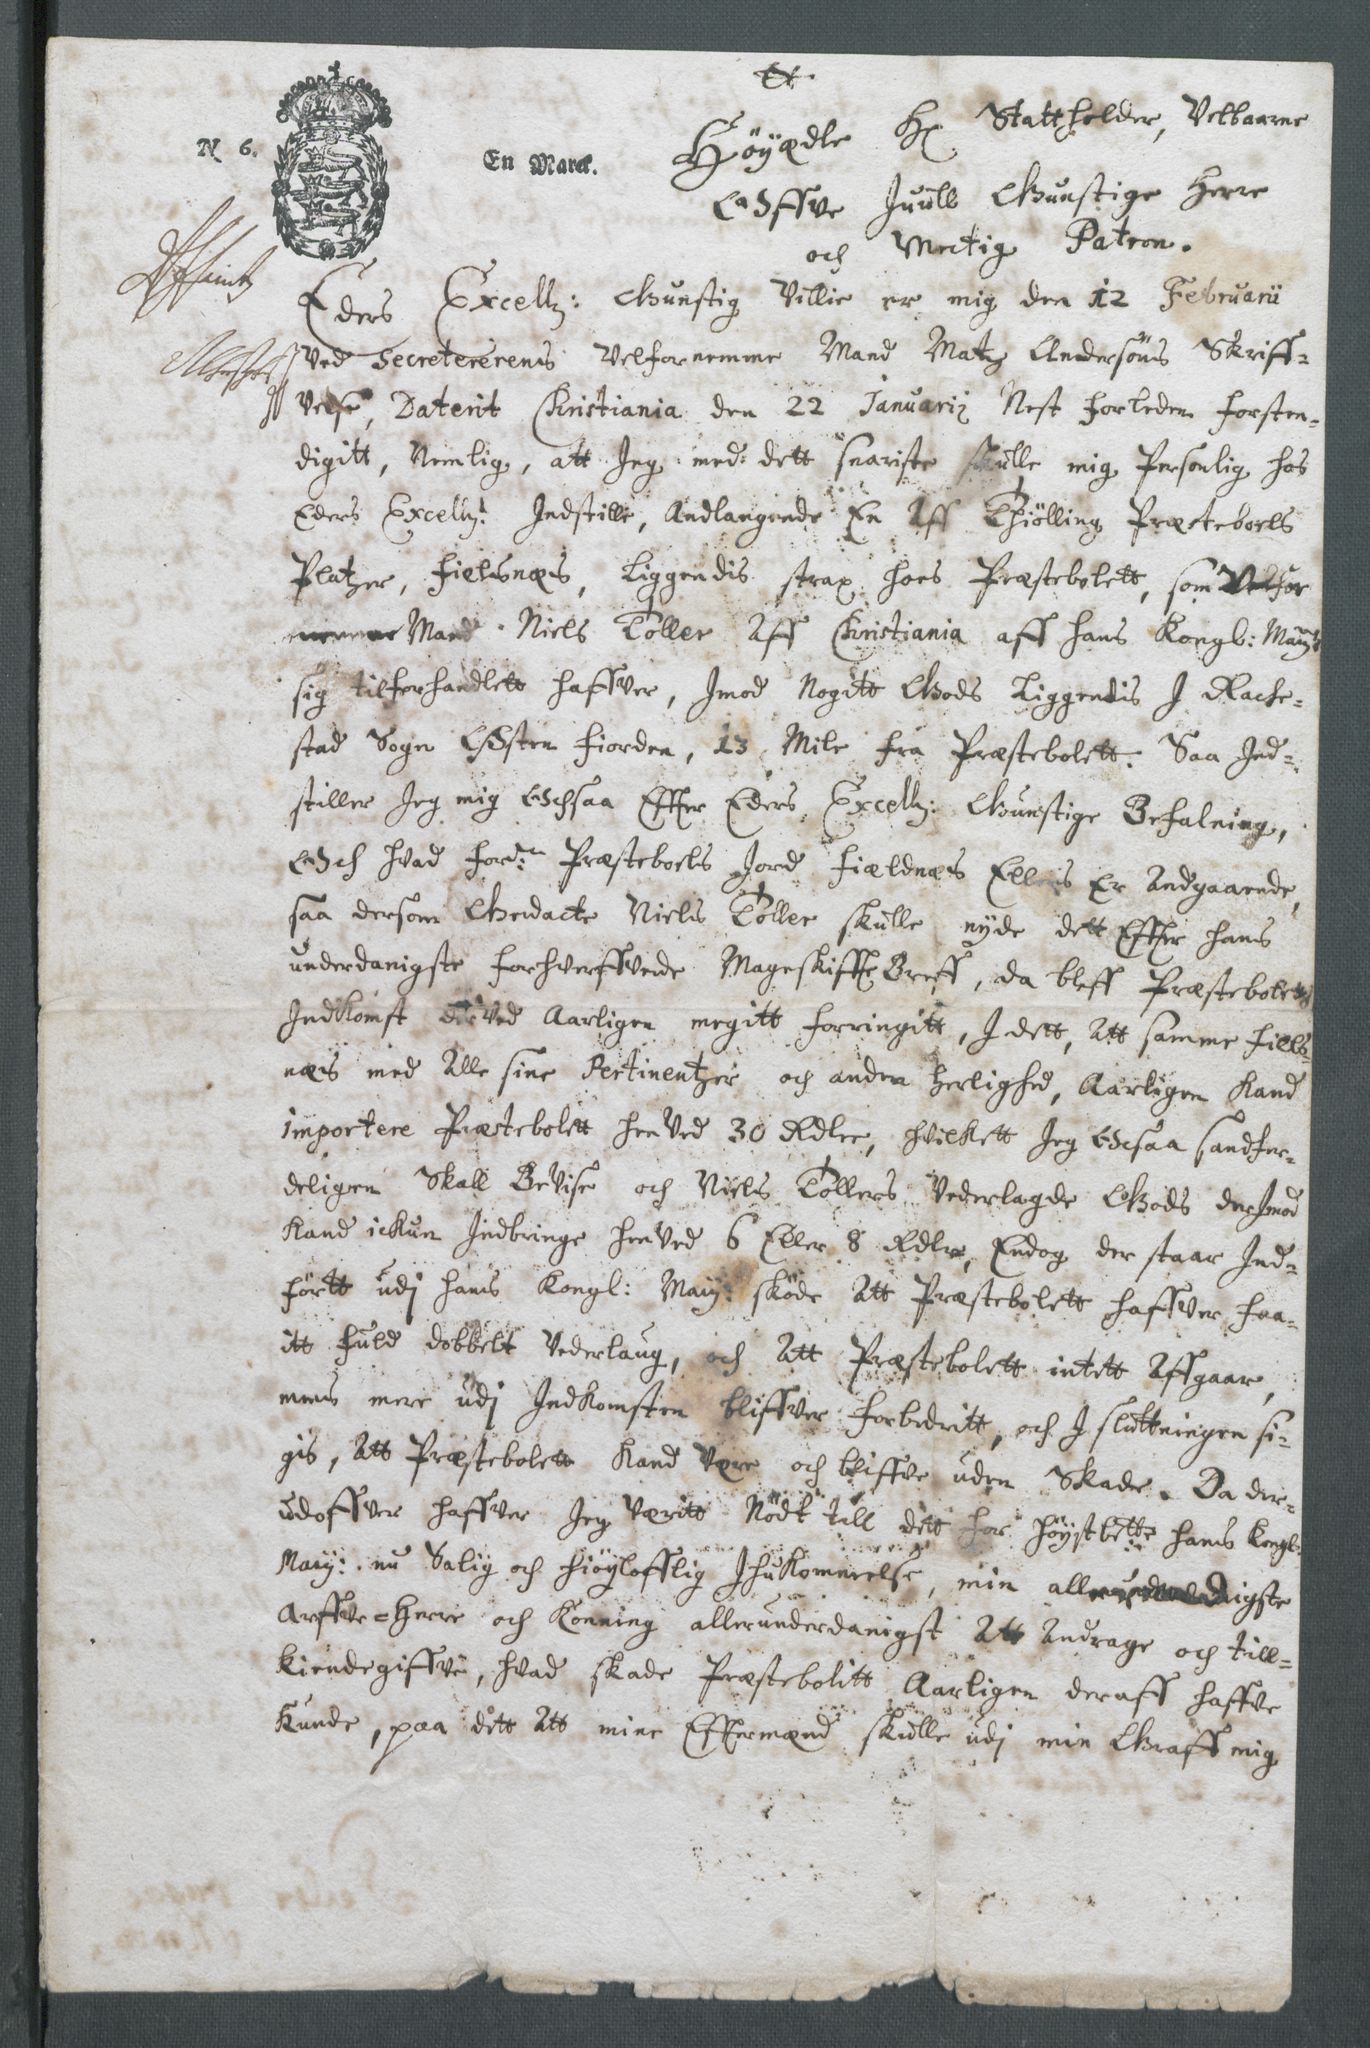 N 6.
En Marck.
Höÿædle Hr Stattholder, Velbaarne
Offve Juull Gunstige Herre
och Mectig Patron.
Eders Excellz: Gunstig Villie er mig den 12 Februarii
Ved Secretererens Velfornemme Mand Matz Andersöns Skriff-
velse, Daterit Christiania den 22 Januarij Nest forleden forsten-
digitt, Nemlig, att Jeg med dett snariste skulle mig Personlig hos
Eders Excellz: Indstille, Andlangende En Aff Thiölling Præsteboels
Platzer, Fielsnæs, Liggendis strax hoes Præstebolett, som Velfor
nemme Mand Niels Toller Aff Christiania aff hans Kongl: Maÿ:
sig tilforhandlett haffver, Jmod Nogitt Gods Liggendis J Rache-
stad Sogn Østen fiorden, 13 Mile fra Præstebolett. Saa Ind-
stiller Jeg mig Ochsaa Effter Eders Excellz: Gunstige Befalning,
Och hvad ford: Præsteboels Jord Fieldnæs Ellers Er Andgaaende,
saa dersom Bemdacte Niels Toller skulle nÿde dett Effter hans
underdanigste forhverffvede Mageskiffte Breff, da bleff Præstebolets
Indkomst derved Aarligen megitt forringitt, J dett, Att samme Fiells-
næs med Alle sine Pertinentzer och anden herlighed, Aarligen Kand
importere Præstebolett hen Ved 30 Rdler, hvilkett Jeg Ochsaa sandfer-
deligen Skall Bevise och Niels Tollers Vederlagde Gods der Jmod
Kand ickun Indbringe hen Ved 6 Eller 8 Rdlr, Endog der staar Ind-
förtt udj hans Kongl: Maÿ: sköde Att Præstebolett haffver faa-
itt fuld dobbelt Vederlaug, och Att Præstebolett intett Affgaar,
mens mere udj Indkomsten bliffver forbedritt, och J sluttningen si-
gis, Att Præstebolett Kand Være och bliffve uden Skade. Da der-
udoffver haffver Jeg Væritt Nödt till dett for höÿstbette hans Kongl:
Maÿ: nu Salig och Höÿlofflig Jhukommelse, min allerunderdanigste
Arffve-Herre och Konning allerunderdanigst Att Andrage och till-
kiendegiffve, hvad skade Præstebolitt Aarligen deraff haffve
Kunde, paa dett Att mine Efftermænd skulle udj min Graff mig